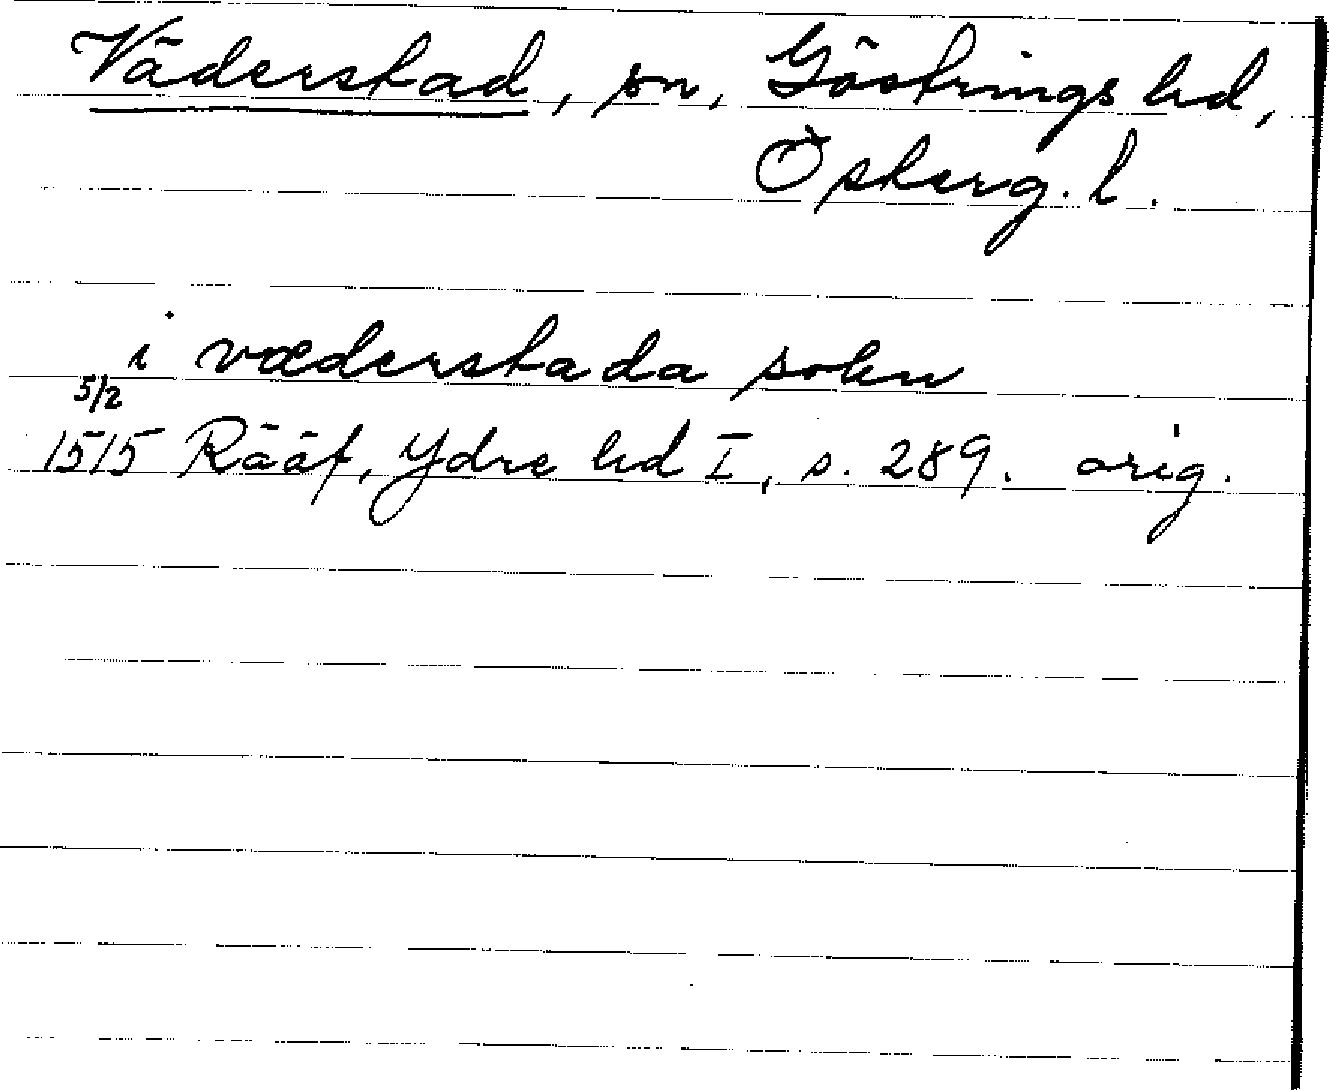 Väderstad, sn, Göstrings hd,
Österg. l.
i væderstada sokn
5/2
1515 Rääf, Ydre hd I, s. 289. orig.